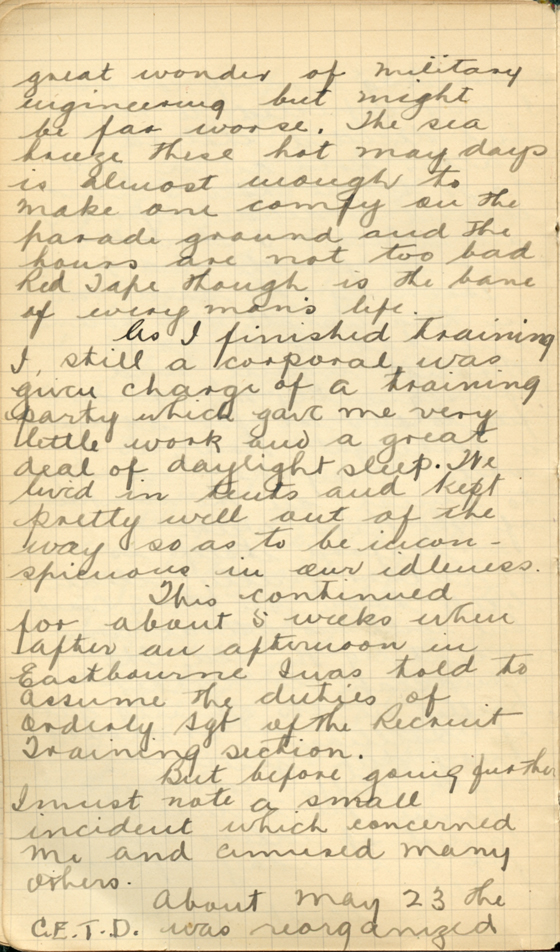 great wonder of military
engineering but might
be far worse. The sea
breeze these hot may days
is almost enough to
make one comfy on the
parade ground and the
hours are not too bad
Red Tape though is the bane
of every man's life.
As I finished training
I, still a corporal, was
given charge of a training
party which gave me very
little work and a great
deal of daylight sleep. We
lived in tents and kept
pretty well out of the
way so as to be incon-
spicuous in our idleness.
This continued
for about 5 weeks when
after an afternoon in
Eastbourne I was told to
assume the duties of
Orderly Sgt of the Recruit
Training section.
But before going further
I must note a small
incident which concerned
me and amused many
others.
About May 23 the
C.E.T.D. was reorganized